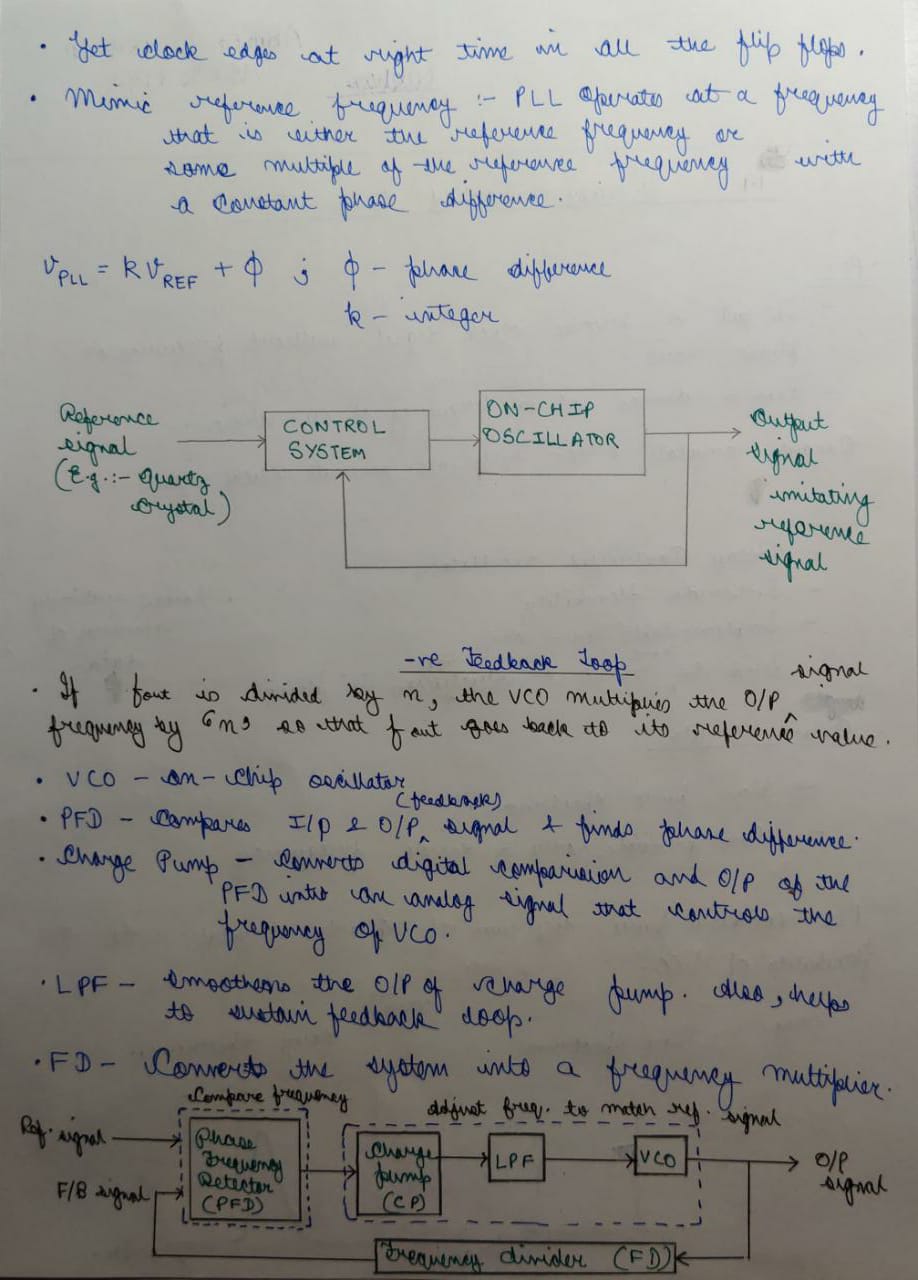 • Get clock edges at right time in all the flip flops.
• Mimic reference frequency :- PLL operates at a frequency
that is either the reference frequency or
some multiple of the reference frequency with
a constant phase difference.
V_PLL = k V_REF + φ ; φ - phase difference
k - integer
Reference
signal
(E.g.:- Quartz
crystal)
CONTROL
SYSTEM
ON-CHIP
OSCILLATOR
Output
signal
imitating
reference
signal
-ve Feedback Loop
• If fout is divided by n, the VCO multiplies the O/P signal
frequency by 'n' so that fout goes back to its reference value.
• VCO - on-chip oscillator
• PFD - Compares I/p & O/P (feedback) signal & finds phase difference.
• Charge Pump - Converts digital comparision and O/P of the
PFD into an analog signal that controls the
frequency of VCO.
• LPF - Smoothens the O/P of charge pump. Also, helps
to sustain feedback loop.
• FD - Converts the system into a frequency multiplier.
Compare frequency
adjust freq. to match ref. signal
Ref. signal
F/B signal
Phase
Frequency
Detector
(PFD)
Charge
pump
(CP)
LPF
VCO
O/P
signal
Frequency divider (FD)